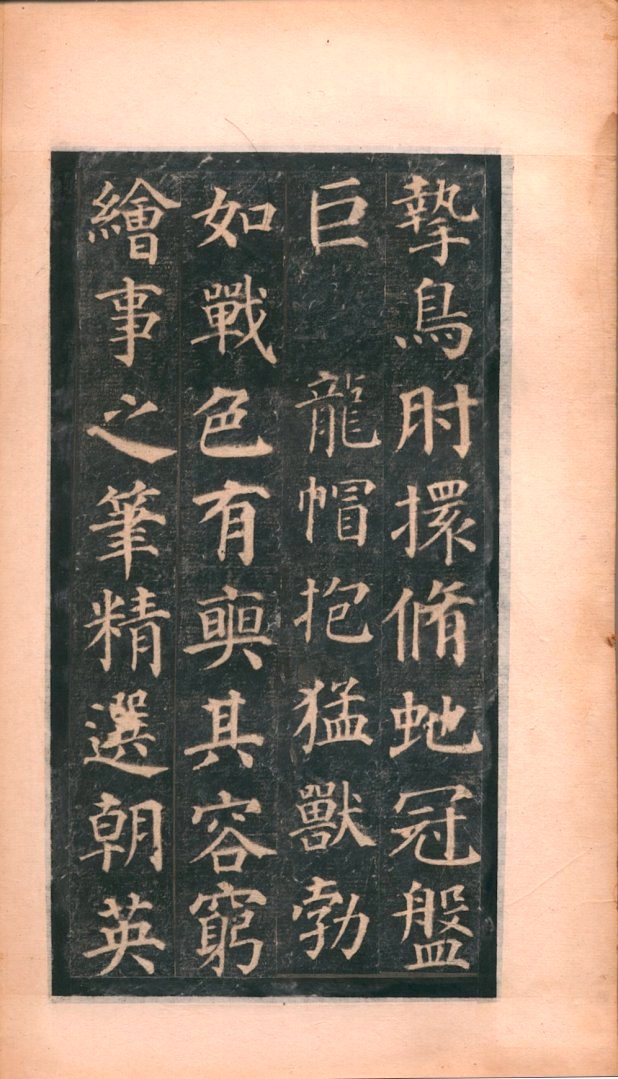 摯鳥肘擐脩虵冠盤
巨　龍帽抱猛獸勃
如戰色有奭其容窮
繪事之筆精選朝英